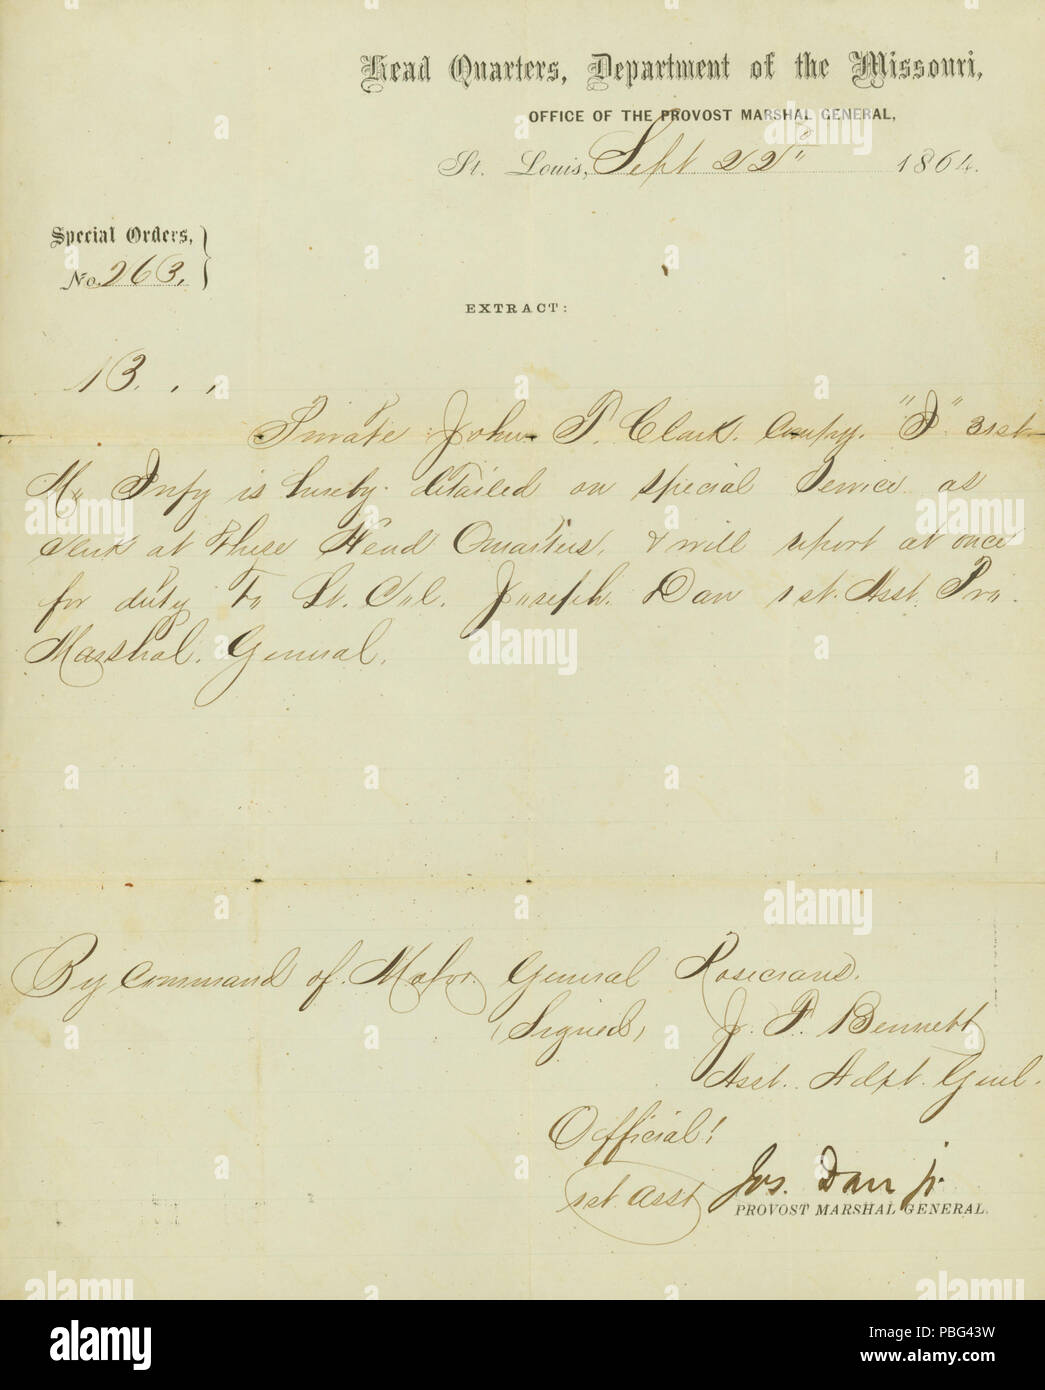 Head Quarters, Department of the Missouri,
OFFICE OF THE PROVOST MARSHAL GENERAL,
St. Louis, Sept. 22" 1864.
Special Orders,
No. 263.
EXTRACT:
13. , ,
Private John T. Clark. Compy. "F" 31st
Mo Infy is hereby detailed on special service as
clerk at these Head Quarters, & will report at once
for duty to Lt. Col. Joseph. Darr 1st. Asst. Pro.
Marshal. General.
By Command of. Major. General Rosecrans.
(Signed) J. F. Bennett
Asst. Adjt. Genl.
Official!
1st Asst Jos. Darr jr.
PROVOST MARSHAL GENERAL.
alamy
alamy
Image ID: PBG43W
www.alamy.com